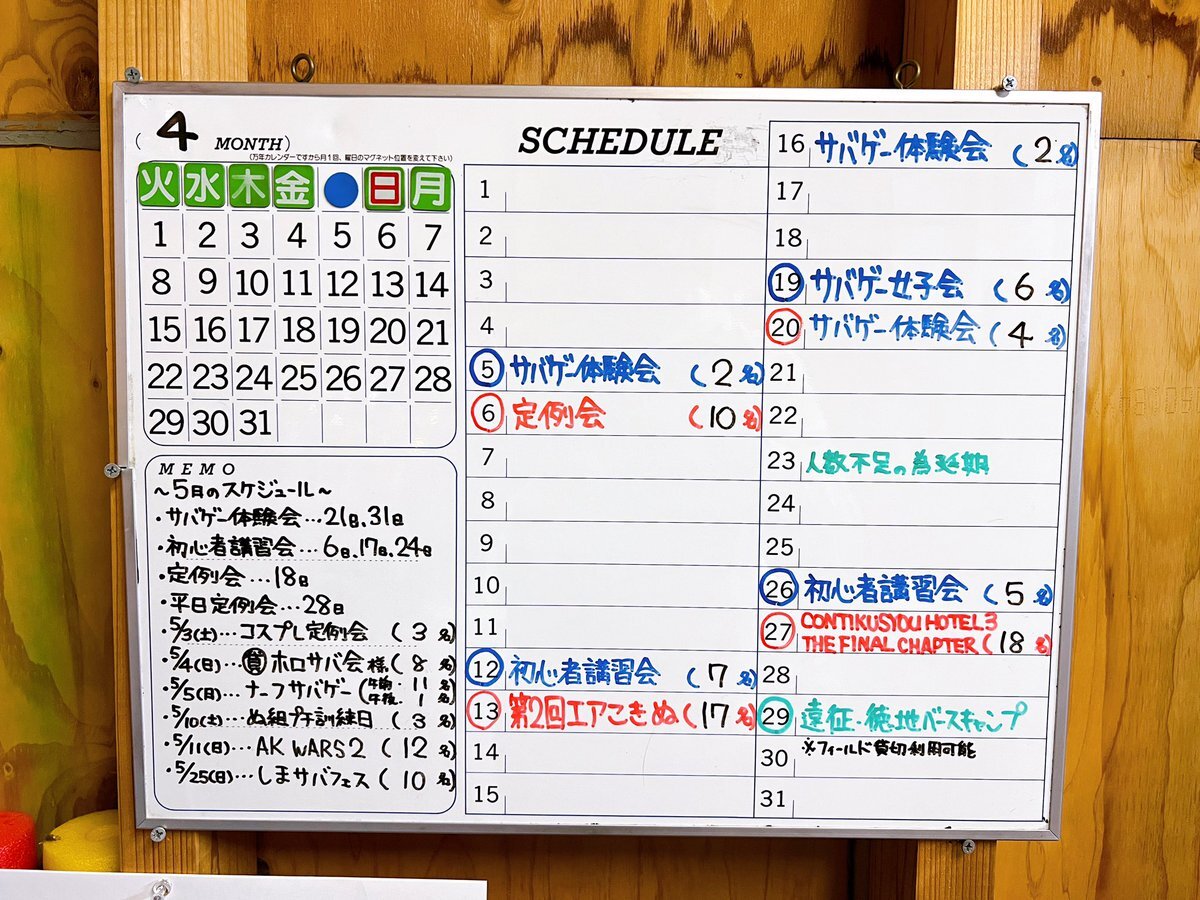 ( 4 MONTH)
(万年カレンダーですから月1回、曜日のマグネット位置を変えて下さい)
火 水 木 金 日 月
1 2 3 4 5 6 7
8 9 10 11 12 13 14
15 16 17 18 19 20 21
22 23 24 25 26 27 28
29 30 31
MEMO
~5日のスケジュール~
・サバゲー体験会…21日、31日
・初心者講習会…6日、17日、24日
・定例会…18日
・平日定例会…28日
・5/3(土)…コスプレ定例会 (3名)
・5/4(日)…貸ホロサバ会様(8名)
・5/5(月)…ナーフサバゲー(午前・11名 午後・1名)
・5/10(土)…ぬ組プチ訓練日 (3名)
・5/11(日)…AK WARS 2 (12名)
・5/25(日)…しまサバフェス (10名)
SCHEDULE
1
2
3
4
5 サバゲー体験会 (2名)
6 定例会 (10名)
7
8
9
10
11
12 初心者講習会 (7名)
13 第2回エアこきぬ(17名)
14
15
16 サバゲー体験会 (2名)
17
18
19 サバゲー女子会 (6名)
20 サバゲー体験会 (4名)
21
22
23 人数不足の為延期
24
25
26 初心者講習会 (5名)
27 CONTIKUSYOU HOTEL3
THE FINAL CHAPTER (18名)
28
29 遠征・徳地ベースキャンプ
30 ※フィールド貸切利用可能
31